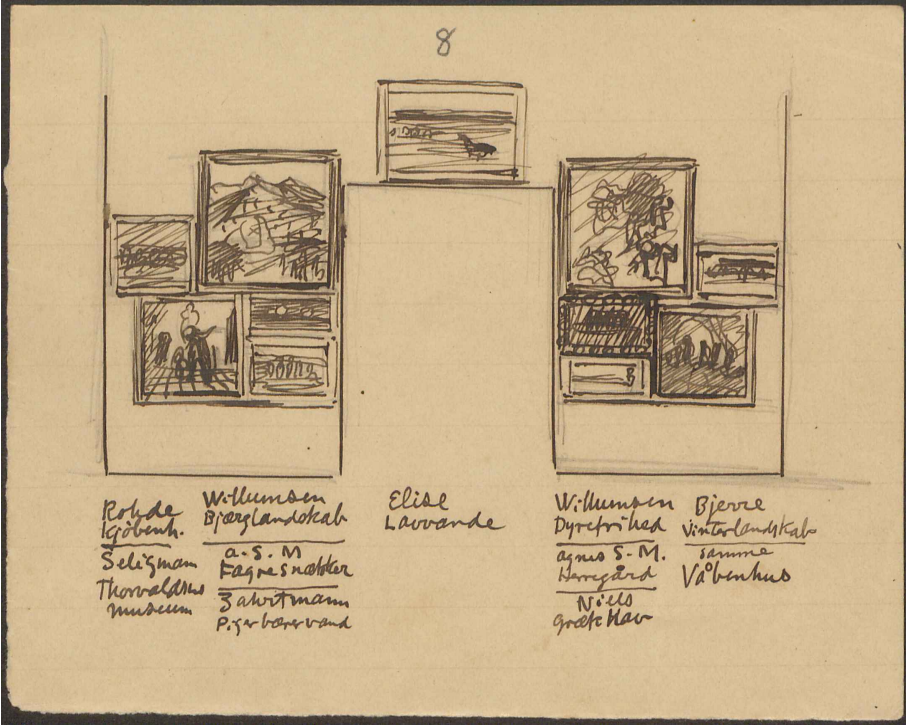 8
Rohde
Kjøbenh.
Seligman
Thorvaldsens
museum
Willumsen
Bjærglandskab
a. S. M
Fagre snækker
Zahrtmann
Piger bærer vand
Elise
Lavvande
Willumsen
Dyrefrihed
agnes S-M.
Herregård
Niels
græsk Hav
Bjerre
Vinterlandskab
samme
Våbenhus